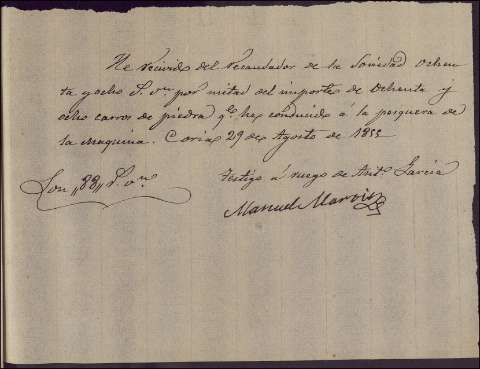 He recivido del Recaudador de la Sociedad ochen
ta y ocho Rs. von por mitad del importe de Ochenta y
ocho carros de piedra qe he conducido á la pesquera de
la maquina. Coria 29 de Agosto de 1855
Testigo á ruego de Anto. Garcia
Son "88" Rs. von
Manuel